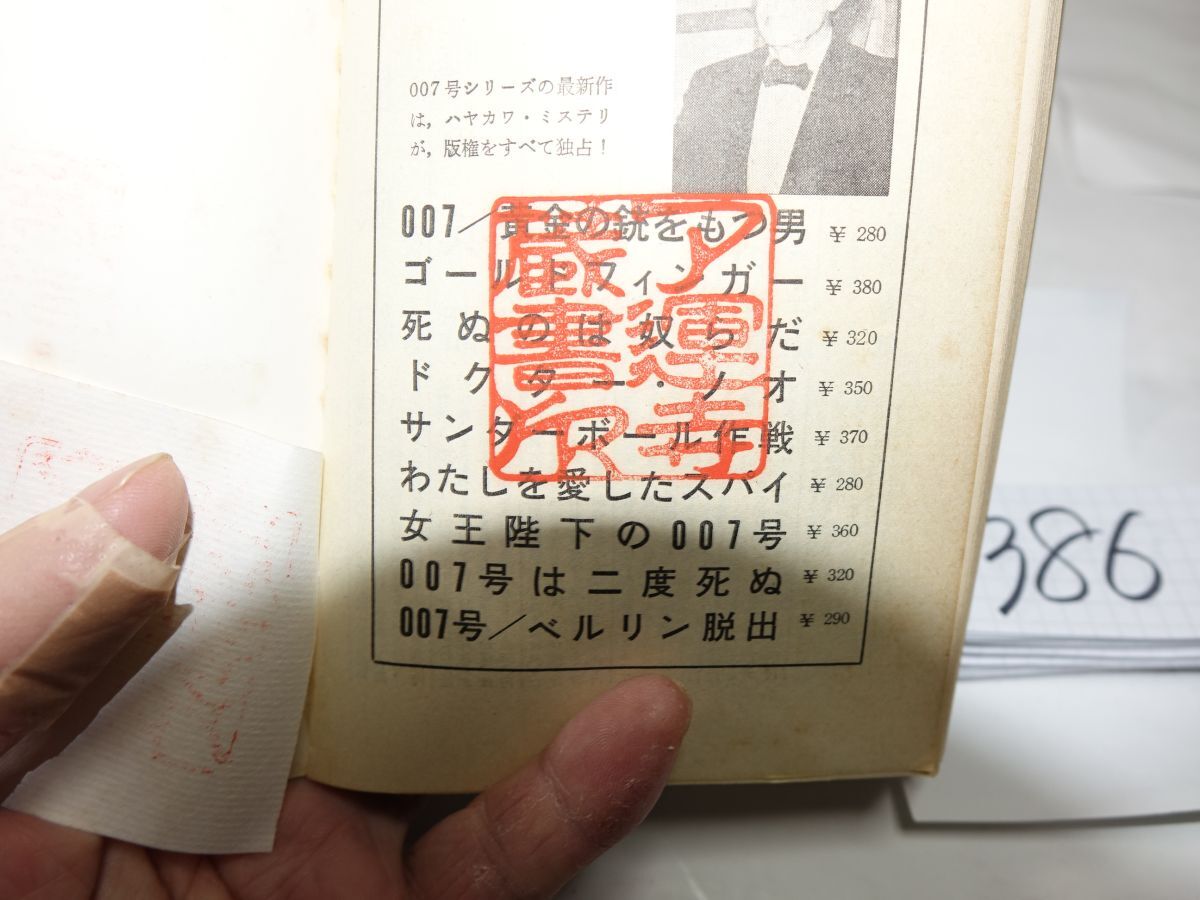 007号シリーズの最新作
は，ハヤカワ・ミステリ
が，版権をすべて独占！
007／黄金の銃をもつ男 ¥ 280
ゴールドフィンガー ¥ 380
死ぬのは奴らだ ¥ 320
ドクター・ノオ ¥ 350
サンダーボール作戦 ¥ 370
わたしを愛したスパイ ¥ 280
女王陛下の007号 ¥ 360
007号は二度死ぬ ¥ 320
007号／ベルリン脱出 ¥ 290
蔵書
386